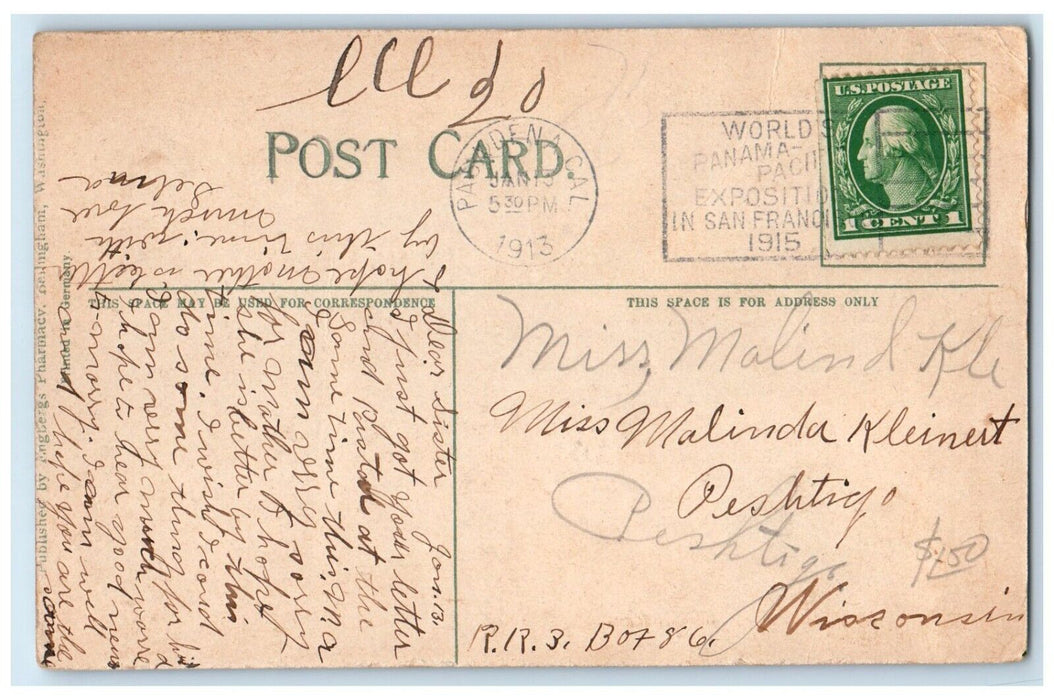 POST CARD.
PASADENA, CAL
JAN 13
5 30 PM
1913
WORLD'S
PANAMA-
PACIFIC
EXPOSITION
IN SAN FRANCISCO
1915
U.S. POSTAGE
1 CENT 1
THIS SPACE MAY BE USED FOR CORRESPONDENCE
THIS SPACE IS FOR ADDRESS ONLY
Published by Engbergs Pharmacy, Bellingham, Washington.
Printed in Germany
Jan. 13.
Dear Sister
I just got your letter
and Postal at the
Same time this, Ma
I am very sorry
for mother I hope
she is better by this
time. I wish I could
do some thing for
I am very much
I hope to hear good news
tomorry. I am well
and hope you are the
same
I hope mother is
by this time. with
much love
Selma
Miss, Malind Kle
Miss Malinda Kleinert
Peshtigo
Peshtigo
Wisconsin
R.R. 3. Box 86.
$1.50